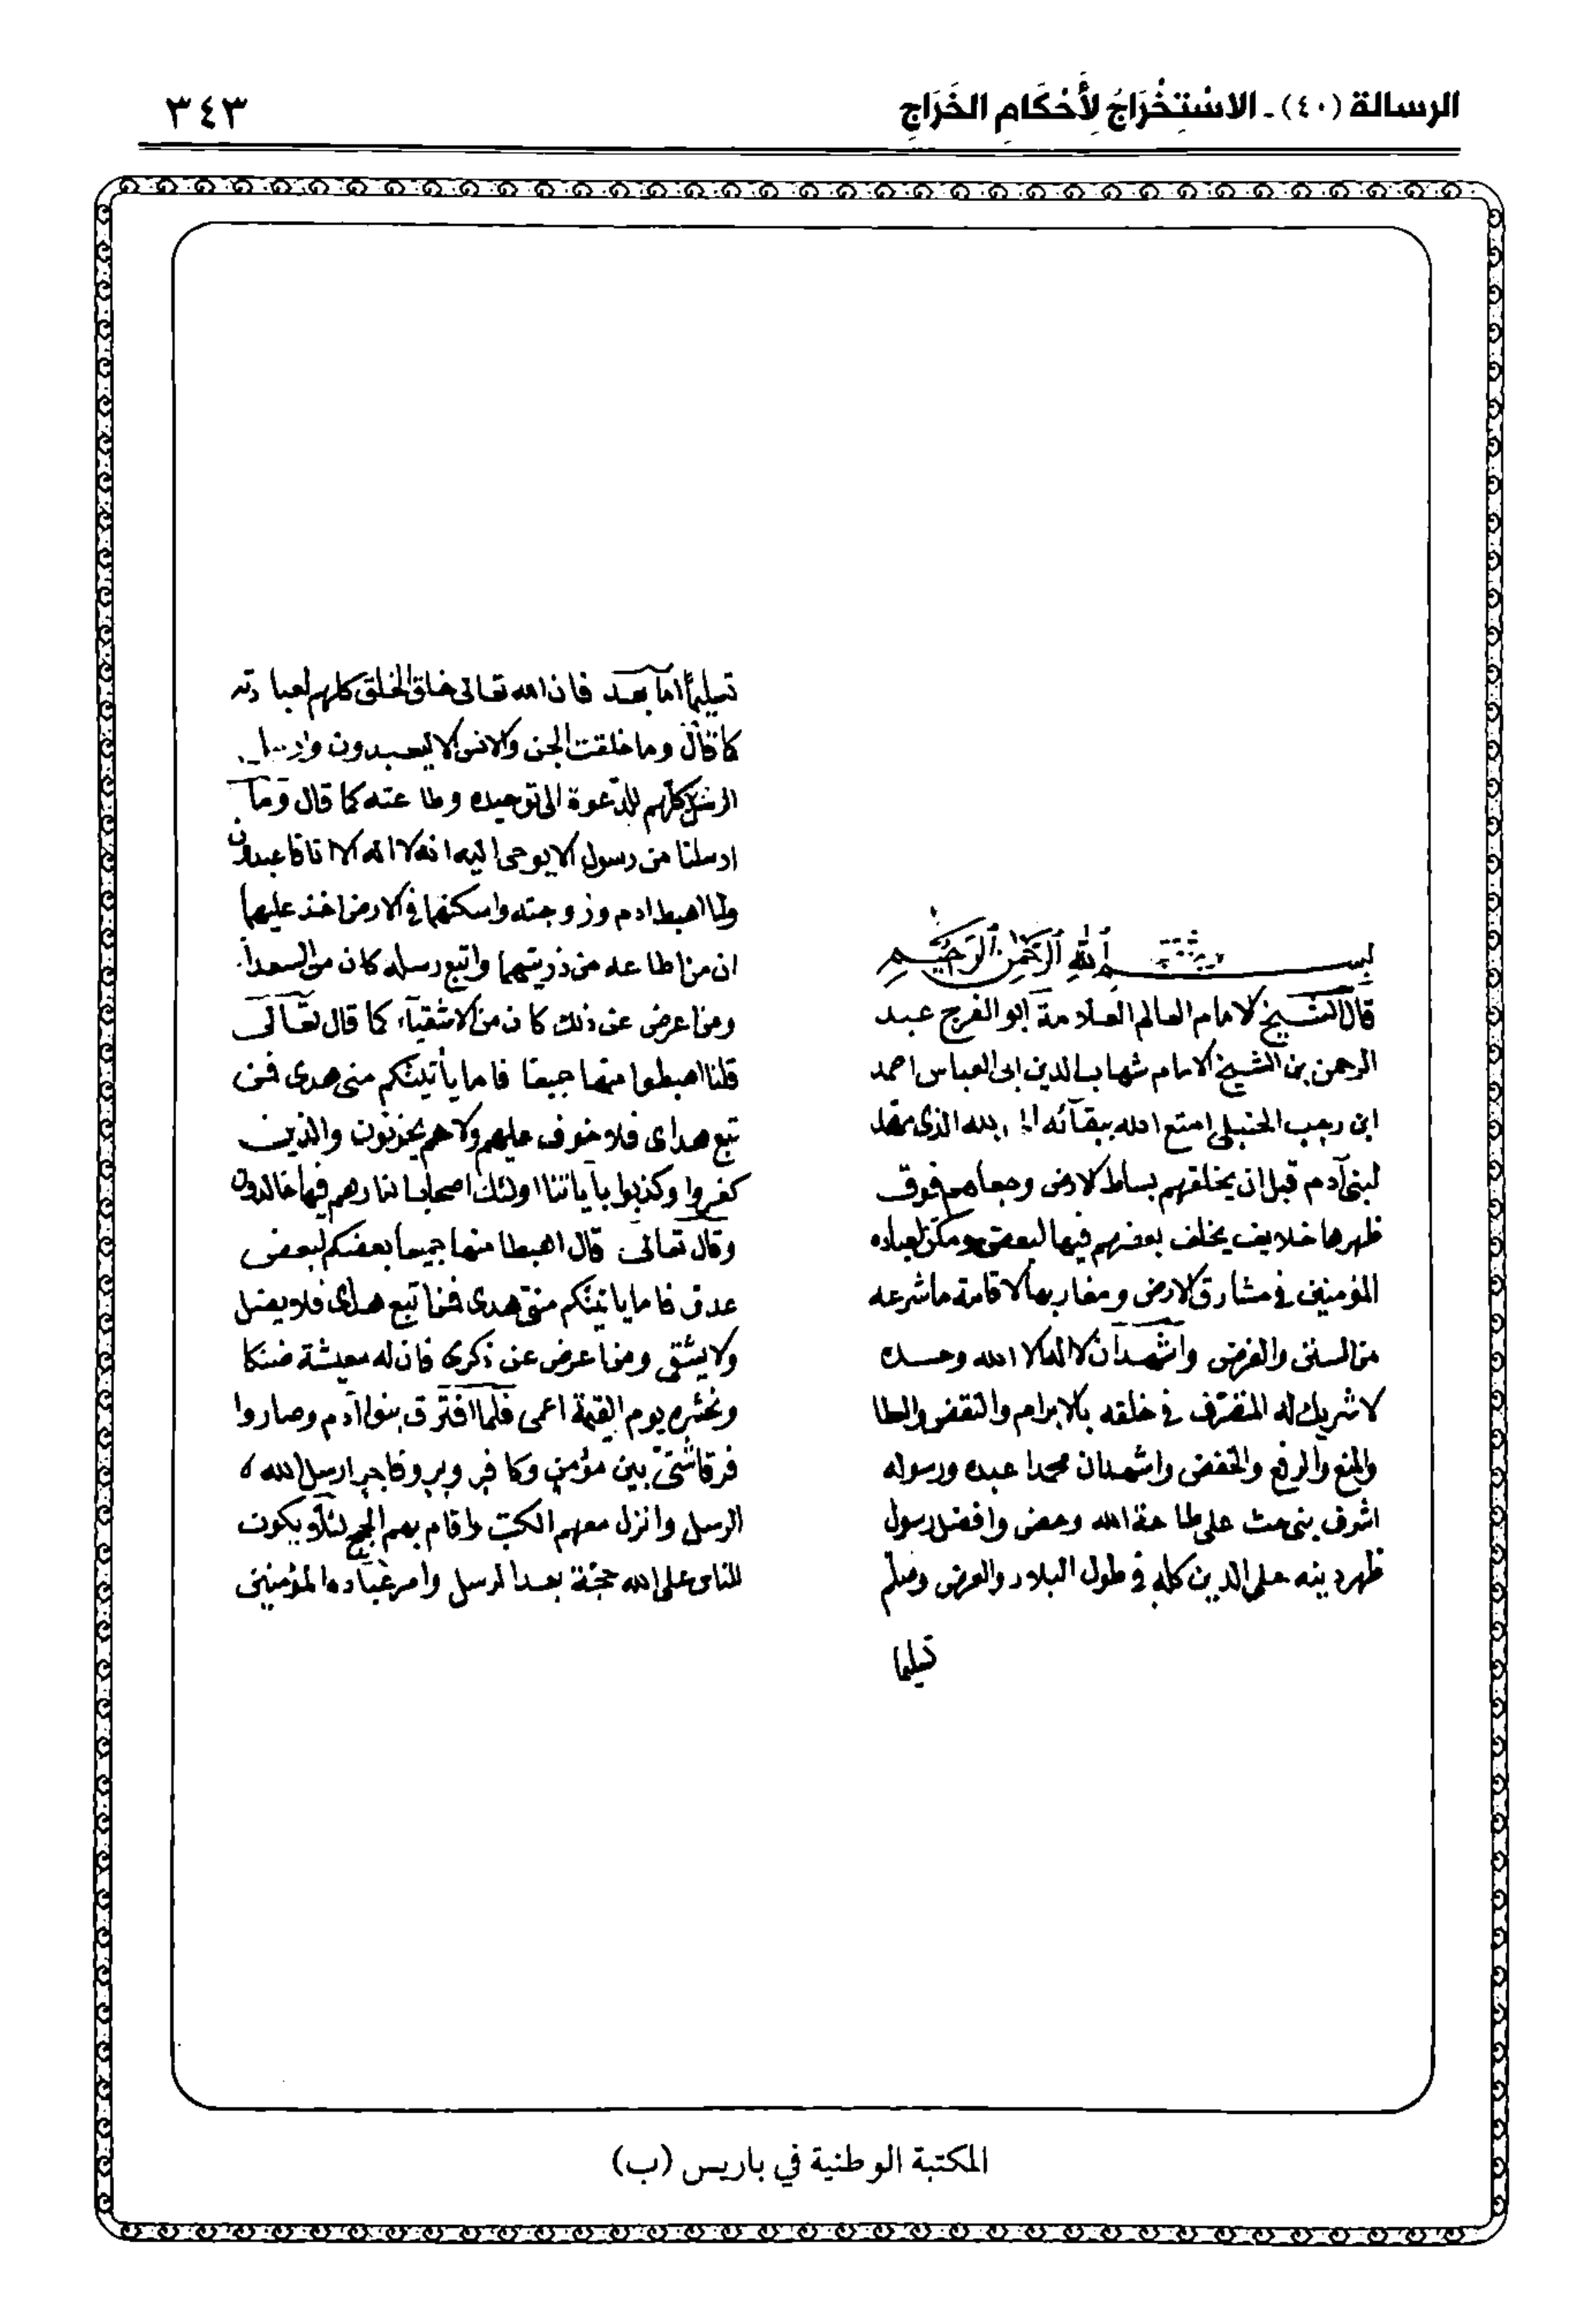 الرسالة (٤٠) ـ الاسْتِخْرَاجُ لِأَحْكَامِ الخَرَاجِ
٣٤٣
بسم الله الرحمن الرحيم
قال الشيخ الامام العالم العلامة ابو الفرج عبد
الرحمن بن الشيخ الامام شهاب الدين ابى العباس احمد
ابن رجب الحنبلى امتع الله ببقآئه لله الذى مهد
لبنى آدم قبل ان يخلقهم بساط الارض وجعلهم فوق
ظهرها خلايف يخلف بعضهم فيها لبعض ومكن لعباده
المؤمنين فى مشارق الارض ومغاربها لاقامة ما شرعه
من السنن والفرض واشهد ان لا اله الا الله وحده
لا شريك له المتصرف فى خلقه بالابرام والنقض والعطا
والمنع والرفع والخفض واشهد ان محمدا عبده ورسوله
اشرف نبى حث على طاعة الله وحض وافضل رسول
ظهر دينه على الدين كله فى طول البلاد والعرض وسلم
تسليما
تسليمًا اما بعد فان الله تعالى خلق الخلق كلهم لعبادته
كما قال وما خلقت الجن والانس الا ليعبدون وارسل
الرسل كلهم للدعوة الى توحيده وطاعته كما قال وما
ارسلنا من رسول الا يوحى اليه انه لا اله الا انا فاعبدون
ولما اهبط ادم وزوجته واسكنهما فى الارض اخذ عليهما
ان من اطاعه من ذريتهما واتبع رسله كان من السعدآ
ومن اعرض عن ذلك كان من الاشقيآء كما قال تعالى
قلنا اهبطوا منها جميعا فاما يأتينكم منى هدى فمن
تبع هداى فلا خوف عليهم ولا هم يحزنون والذين
كفروا وكذبوا بآياتنا اولئك اصحاب النار هم فيها خالدون
وقال تعالى قال اهبطا منها جميعا بعضكم لبعض
عدو فاما ياتينكم منى هدى فمن اتبع هداى فلا يضل
ولا يشقى ومن اعرض عن ذكرى فان له معيشة ضنكا
ونحشره يوم القيمة اعمى فلما افترق بنوا آدم وصاروا
فرقا شتى بين مؤمن وكافر وبر وفاجر ارسل الله
الرسل وانزل معهم الكتب واقام بهم الحجج لئلا يكون
للناس على الله حجة بعد الرسل وامر عباده المؤمنين
المكتبة الوطنية في باريس (ب)